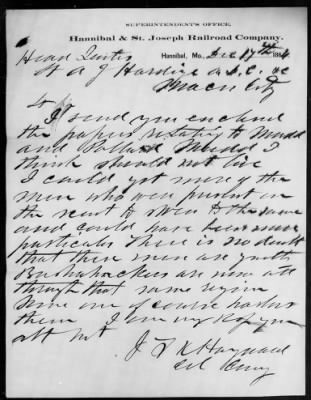 SUPERINTENDENT'S OFFICE,
Hannibal & St. Joseph Railroad Company.
Hannibal, Mo., Dec 17th 1864
Head Quarters
A J Harding
Macon City
I send you enclosed
the papers relating to Mudd
and Pollard Mudd I
think should not live
I could get more of the
men who were present on
the scout to swear to the same
and could have been more
particular There is no doubt
that these men are guilty
Bushwhackers are now all
through that same region
Some one of course harbor
them I am very Resp you
obt svt
J T K Hayward
Col Comg